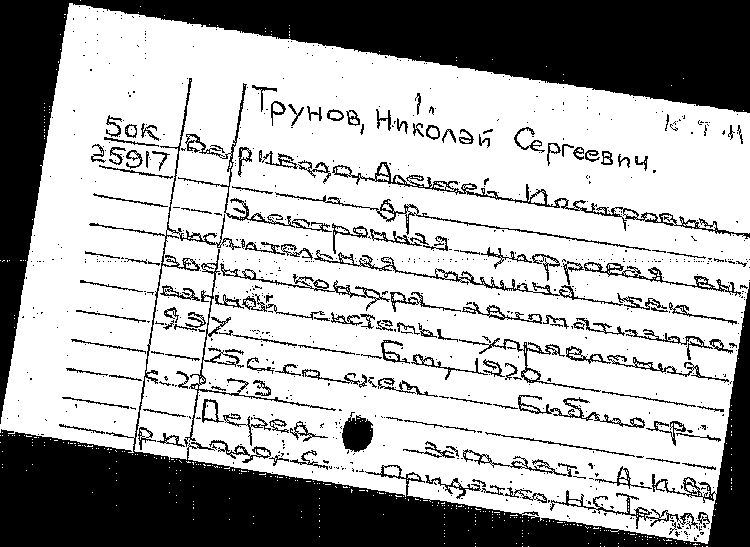 К.Т.Н
Трунов, Николай Сергеевич.
50к Варивода, Алексей Иосифович
25917 и др.
Электронная цифровая вы-
числительная машина как
звено контура автоматизиро-
ванной системы управления
Б.м., 1970.
75с. со схем. Библиогр.:
с. 72-73.
Перед загл. авт.: А.И. Ва
ривода, С. Придатко, Н.С. Трунов